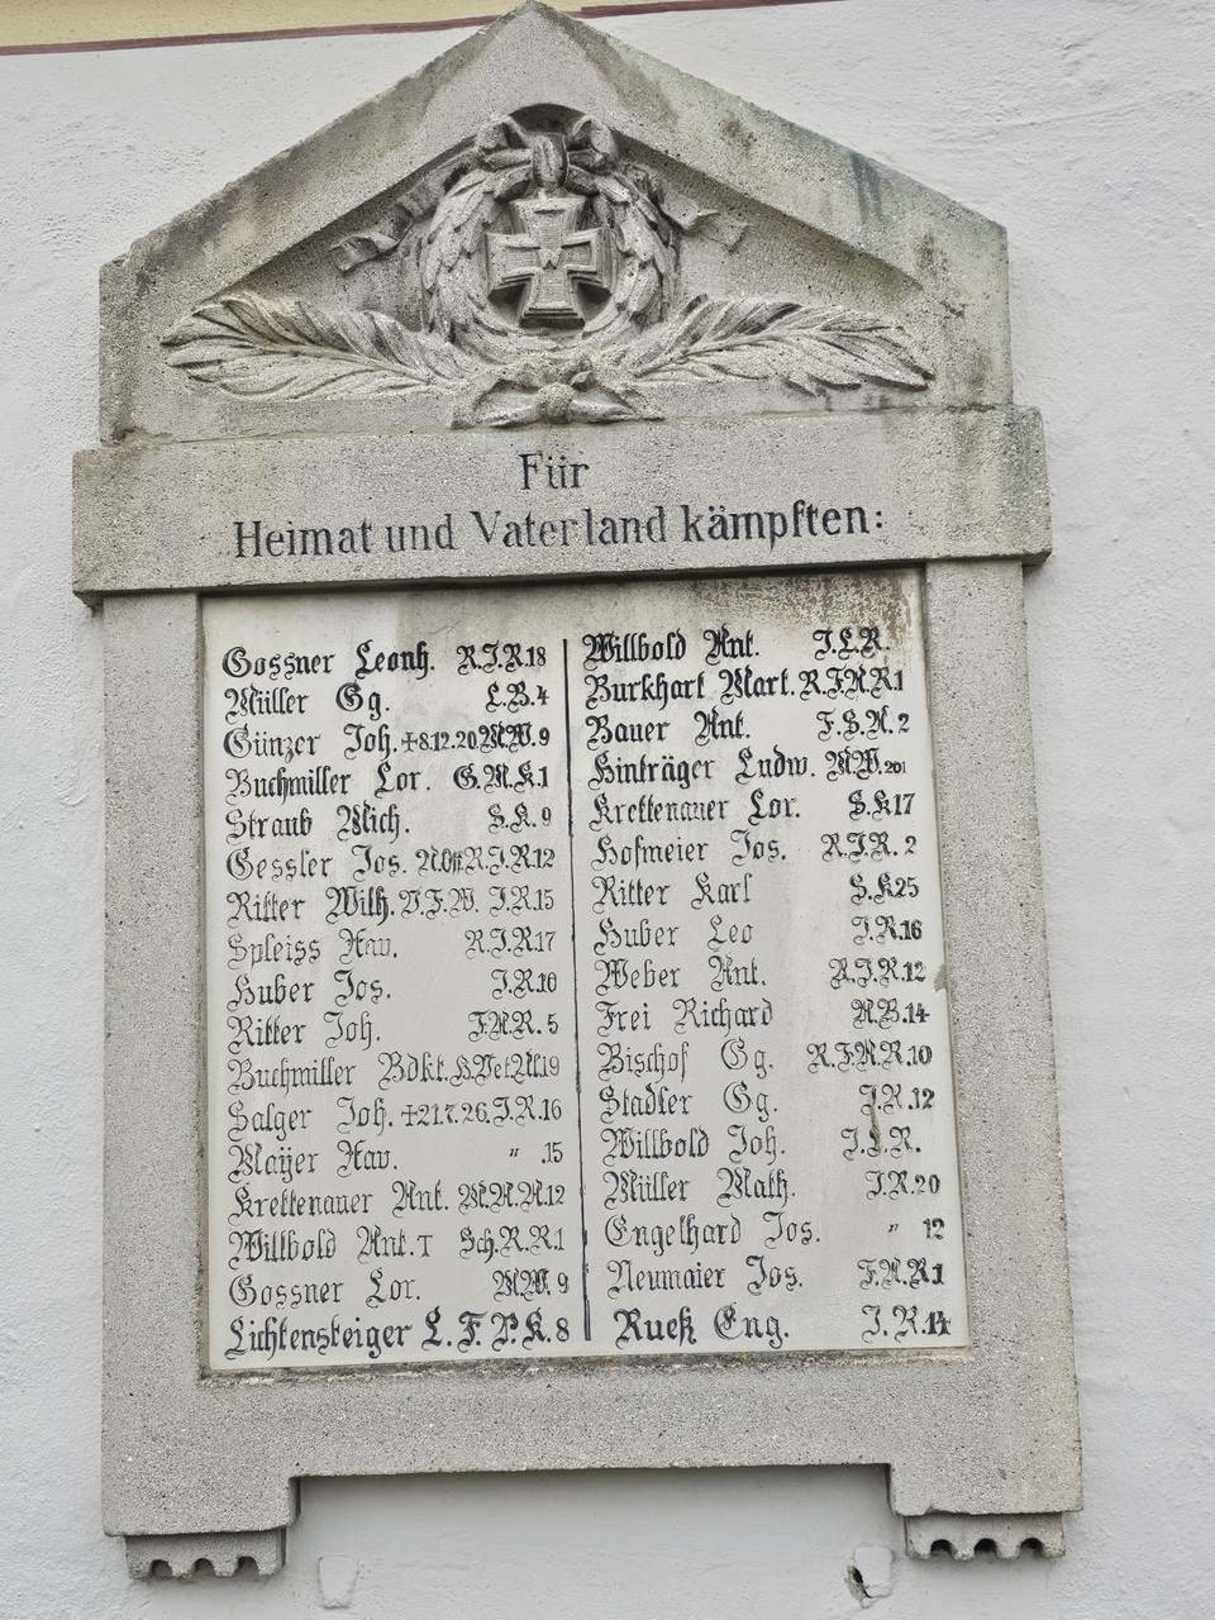 Für
Heimat und Vaterland kämpften:
Gossner Leonh. R.I.R.18
Müller Gg. L.B.4
Günzer Joh. +8.12.20. M.W. 9
Buchmiller Lor. G.M.K.1
Straub Mich. S.K. 9
Gessler Jos. R.I.R.12
Ritter Wilh. V.F.W. I.R.15
Spleiss Xav. R.I.R.17
Huber Jos. I.R.10
Ritter Joh. F.A.R. 5
Buchmiller Bdkt.
Salger Joh. +21.7.26. I.R.16
Mayer Xav. " .15
Krettenauer Ant. M.A.A.12
Willbold Ant. I Sch.R.R.1
Gossner Lor. M.W. 9
Lichtensteiger L. F.P.K. 8
Willbold Ant. I.L.R.
Burkhart Mart. R.F.A.R.1
Bauer Ant. F.S.A. 2
Hinträger Ludw. M.W. 201
Krettenauer Lor. S.K17
Hofmeier Jos. R.I.R. 2
Ritter Karl S.K25
Huber Leo I.R.16
Weber Ant. R.I.R.12
Frei Richard A.B.14
Bischof Gg. R.F.A.R.10
Stadler Gg. I.R.12
Willbold Joh. I.L.R.
Müller Math. I.R.20
Engelhard Jos. " 12
Neumaier Jos. F.A.R1
Rueß Eng. I.R.14